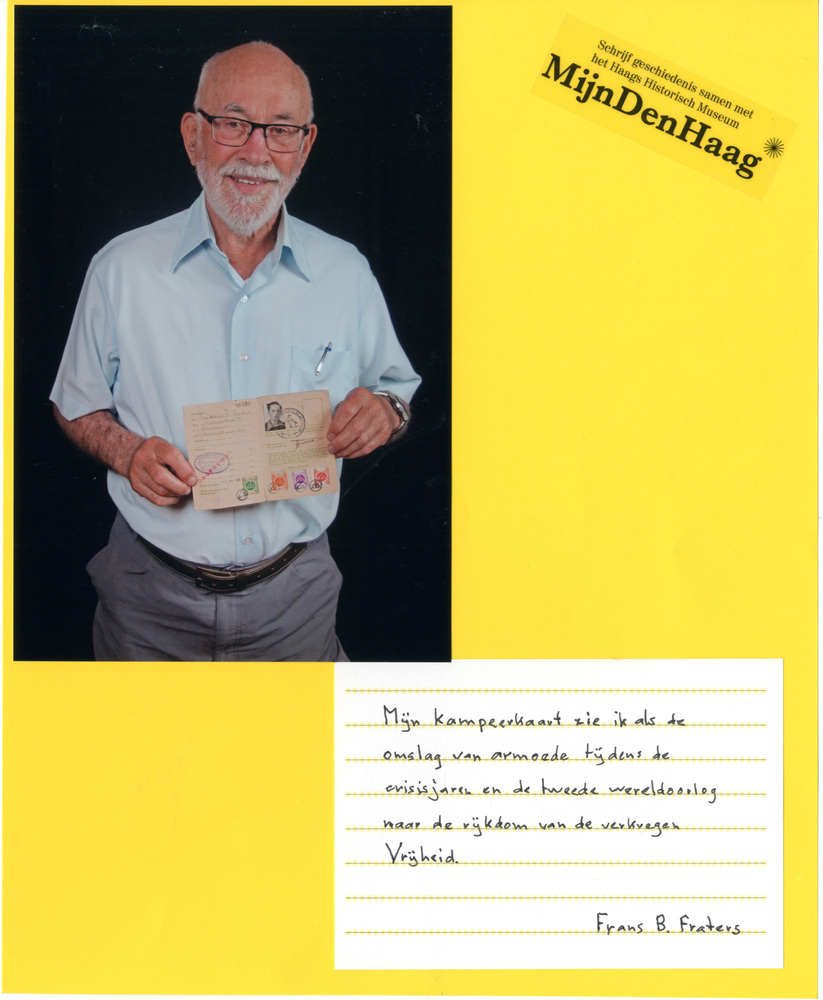 Schrijf geschiedenis samen met
het Haags Historisch Museum
MijnDenHaag
Mijn kampeerkaart zie ik als de
omslag van armoede tijdens de
crisisjaren en de tweede wereldoorlog
naar de rijkdom van de verkregen
Vrijheid.
Frans B. Fraters